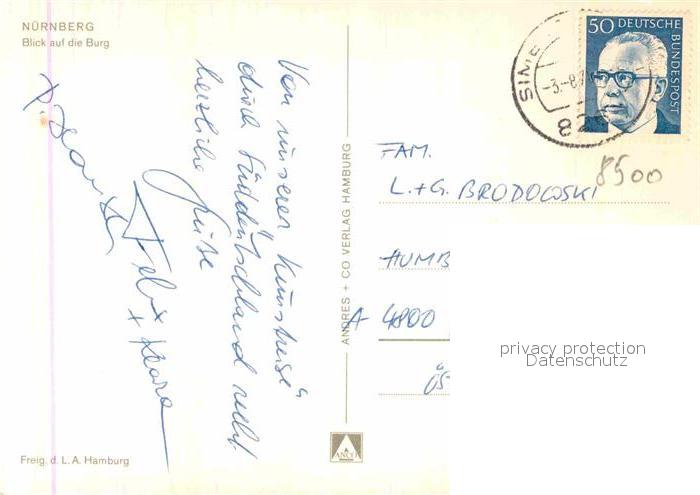 NÜRNBERG
Blick auf die Burg
Von unserer "Kunstreise"
durch Süddeutschland recht
herzliche Grüße
Felix
+ Klara
Freig. d. L. A. Hamburg
ANDRES + CO VERLAG HAMBURG
ANCO
50 DEUTSCHE
BUNDESPOST
SIM
-3.-8.7
82
8500
FAM.
L.+G. BRODOWSKI
HUMB
A 4800
ÖS
privacy protection
Datenschutz